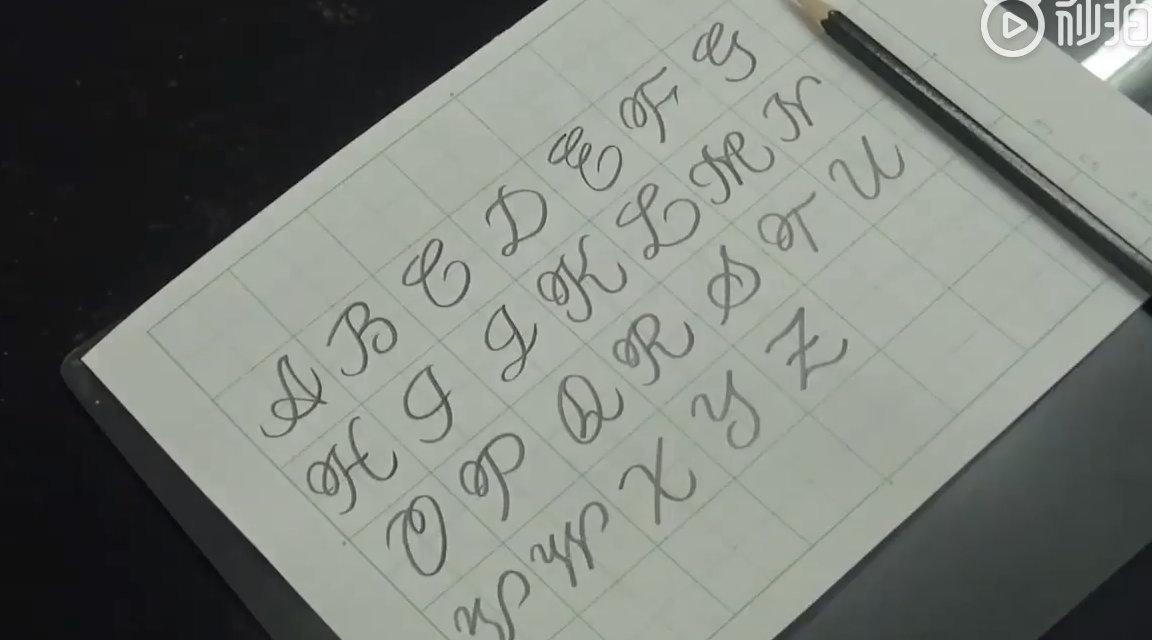 秒拍
A B C D E F G
H I J K L M N
O P Q R S T U
V W X Y Z